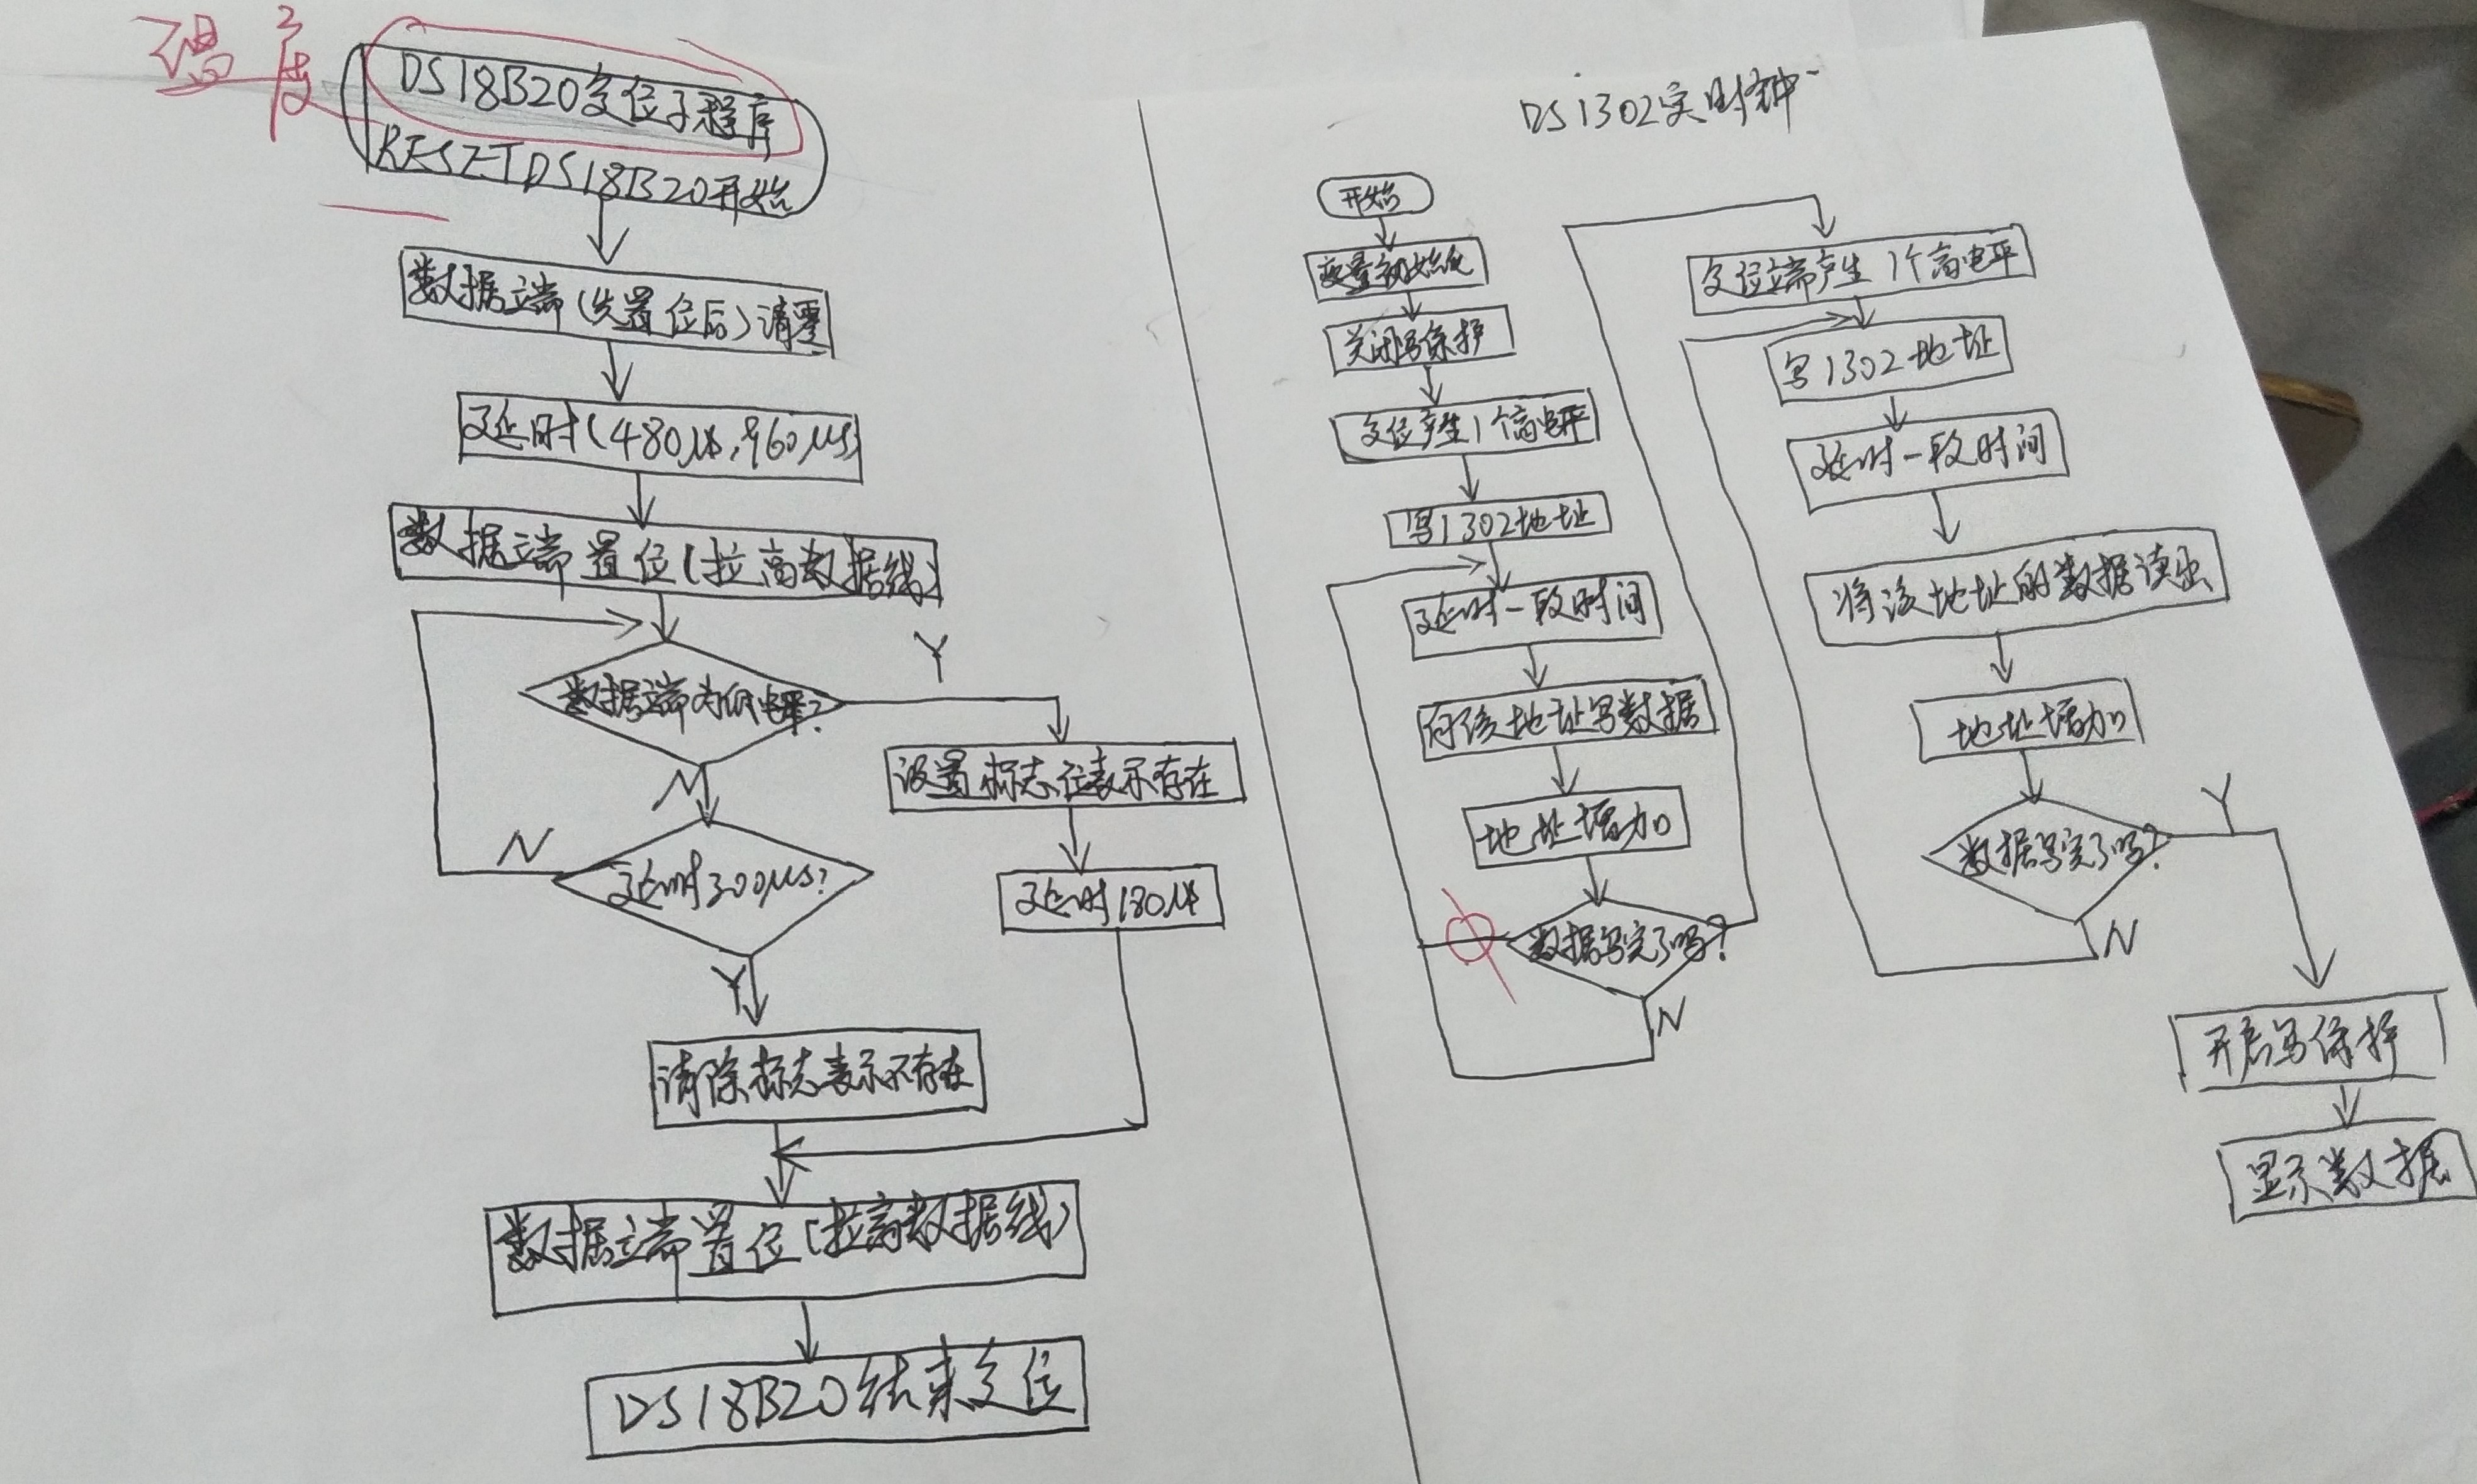 温度
DS18B20复位子程序
RESETDS18B20开始
数据端(先置位后)清零
延时(480μs,960μs)
数据端置位(拉高数据线)
数据端为低电平?
Y
N
设置标志位表示存在
延时300μs?
N
Y
延时180μs
清除标志表示不存在
数据端置位(拉高数据线)
DS18B20结束复位
DS1302实时钟
开始
变量初始化
关闭写保护
复位产生1个高电平
写1302地址
延时一段时间
向该地址写数据
地址增加
数据写完了吗?
N
复位端产生1个高电平
写1302地址
延时一段时间
将该地址的数据读出
地址增加
数据写完了吗?
Y
N
开启写保护
显示数据